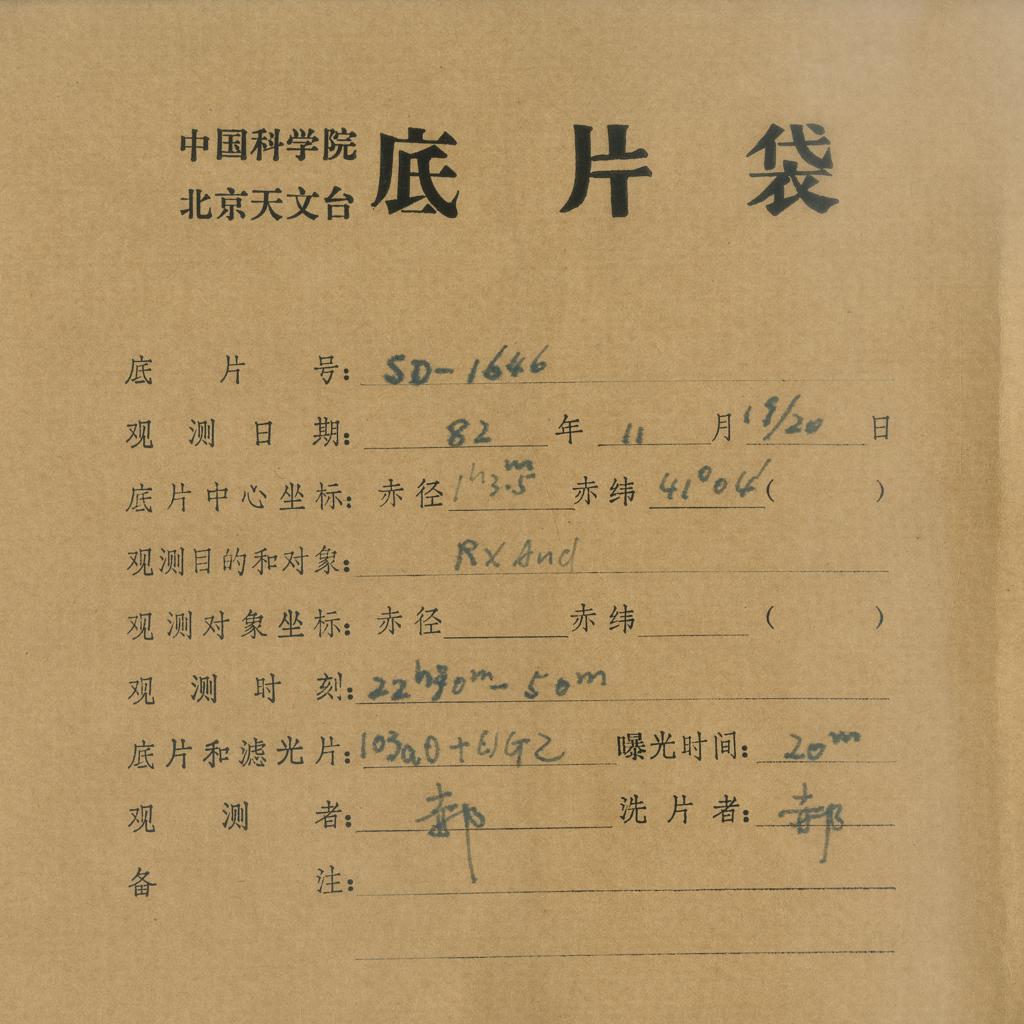 中国科学院
北京天文台
底片袋
底片号：SD-1646
观测日期：82年11月19/20日
底片中心坐标：赤径1ʰ3.ᵐ5赤纬41°04′（ ）
观测目的和对象：RX And
观测对象坐标：赤径 赤纬 （ ）
观测时刻：22ʰ30ᵐ-50ᵐ
底片和滤光片：103aO+GG2 曝光时间：20ᵐ
观测者：郝 洗片者：郝
备注：